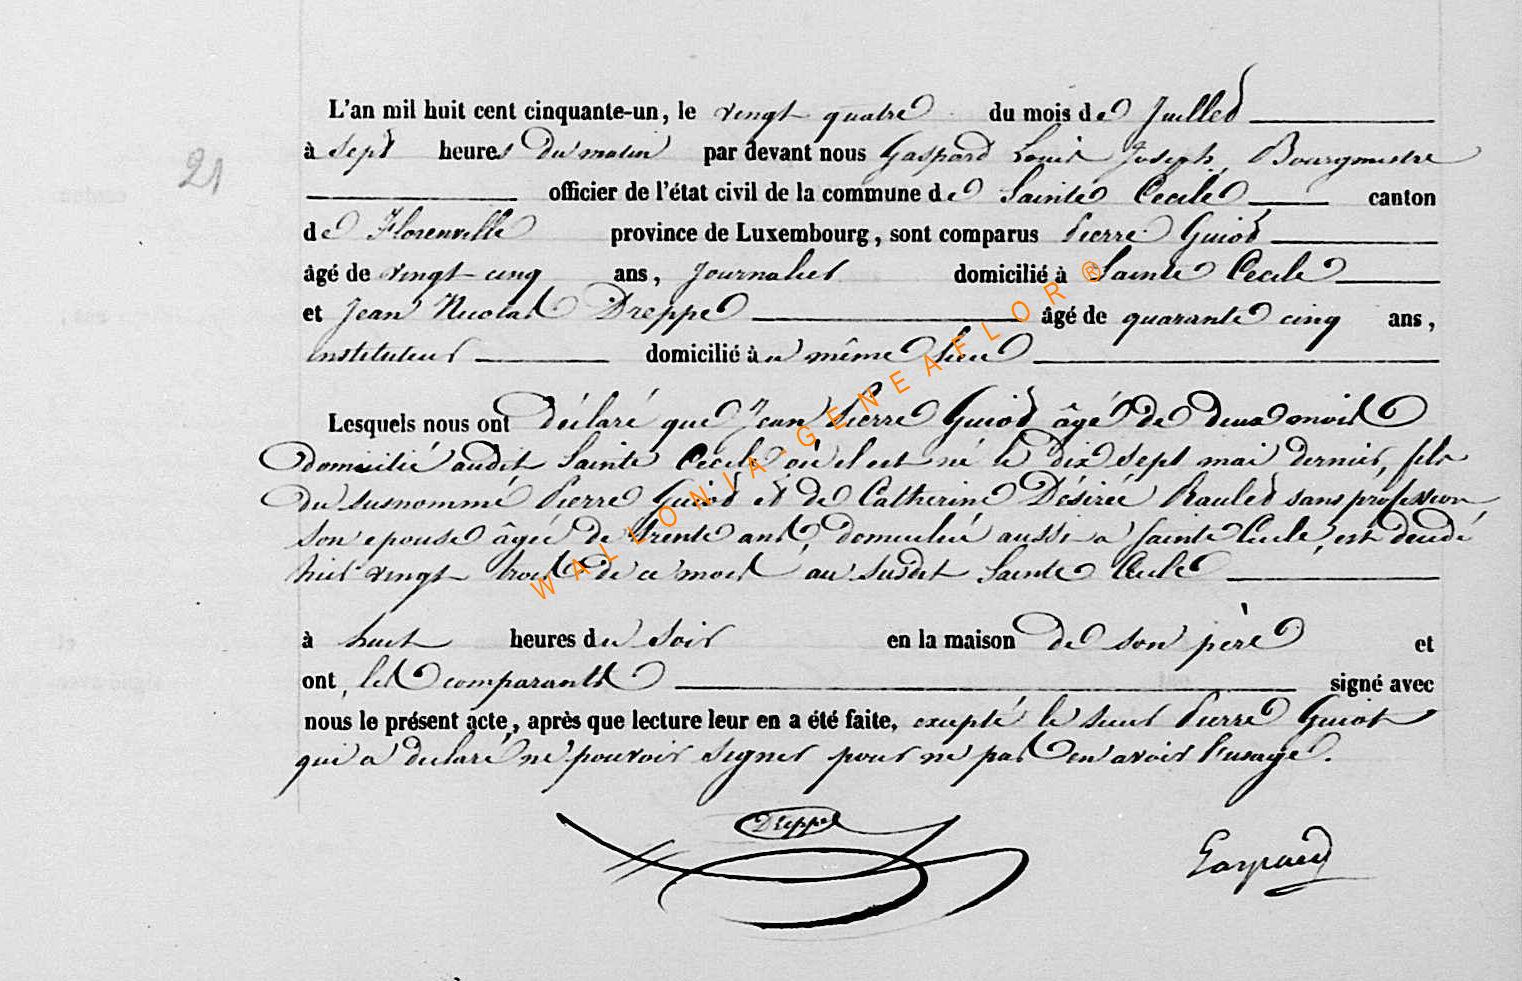 21
L'an mil huit cent cinquante-un, le vingt quatre du mois de Juillet
à sept heures du matin par devant nous Gaspard Louis Joseph, Bourgmestre
officier de l'état civil de la commune de Sainte Cecile canton
de Florenville province de Luxembourg, sont comparus Pierre Guiot
âgé de vingt cinq ans, Journalier domicilié à Sainte Cecile
et Jean Nicolas Dreppe âgé de quarante cinq ans,
instituteur domicilié à u même lieu
Lesquels nous ont déclaré que Jean Pierre Guiot âgé de deux mois
domicilié audit Sainte Cecile où il est né le dix sept mai dernier, fils
du susnommé Pierre Guiot et de Catherine Désirée Raulet sans profession
son epouse âgée de trente ans, domiciliée aussi a Sainte Cecile, est décédé
hier vingt trois de ce mois au susdit Sainte Cecile
à huit heures du soir en la maison de son père et
ont, les comparants signé avec
nous le présent acte, après que lecture leur en a été faite, excepté le sieur Pierre Guiot
qui a déclaré ne pouvoir signer pour ne pas en avoir l'usage.
Dreppe
Gaspard
WALLONIA-GENEAFLOR®